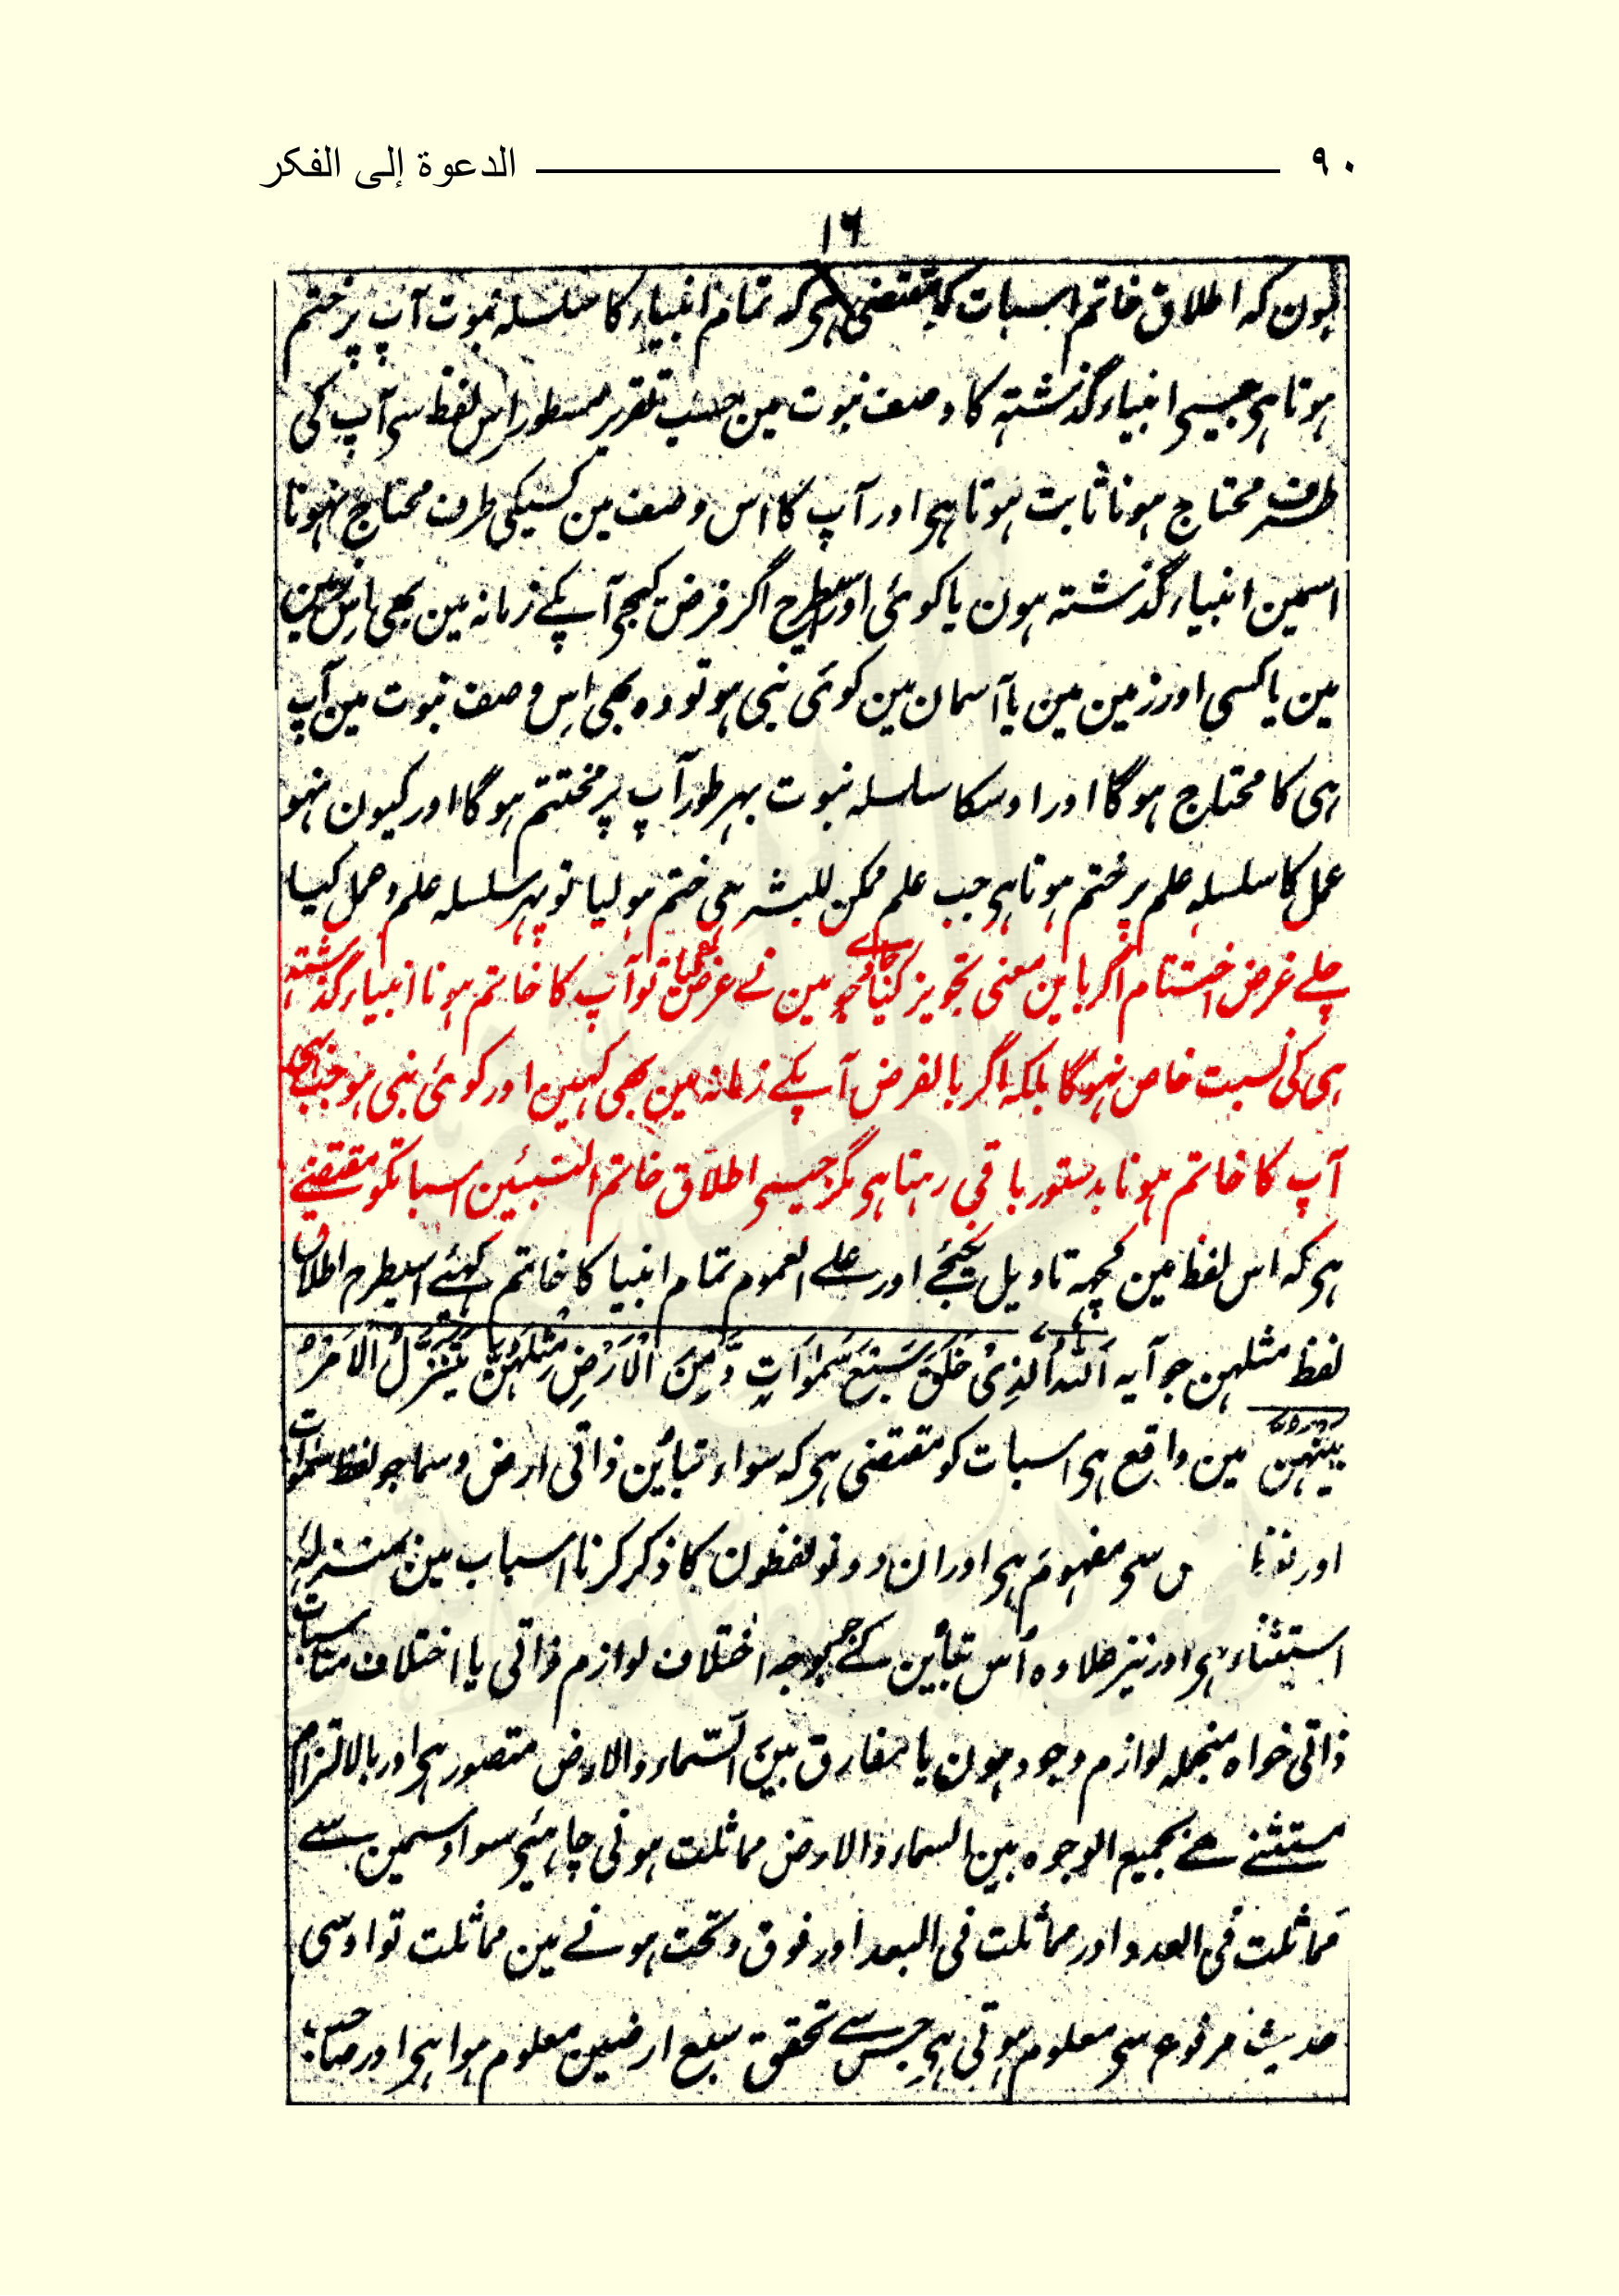 ٩٠ الدعوة إلى الفكر
١٦
ہون کہ اطلاق خاتم اسبات کا مقتضی ہی کہ تمام انبیاء کا سلسلہ نبوت آپ پر ختم
ہوتا ہی جیسی انبیاء گذشتہ کا وصف نبوت مین حسب تقریر مسطور اس لفظ سی آپ کی
طرف محتاج ہونا ثابت ہوتا ہی اور آپ کا اس وصف مین کسیکی طرف محتاج نہونا
اسمین انبیاء گذشتہ ہون یا کوئی اور اسیطرح اگر فرض کیجی آپکے زمانہ مین بھی اس زمین
مین یا کسی اور زمین مین یا آسمان مین کوئی نبی ہو تو وہ بھی اِس وصف نبوت مین آپ
ہی کا محتاج ہوگا اور اوسکا سلسلہ نبوت بہر طور آپ پر مختتم ہوگا اور کیون نہو
عمل کا سلسلہ علم پر ختم ہوتا ہی جب علم ممکن للبشر ہی ختم ہولیا تو پہر سلسلہ علم و عمل کیا
چلے غرض اختتام اگر باین معنی تجویز کیا جاوے جو مین نے عرض کیا تو آپ کا خاتم ہونا انبیاء گذشتہ
ہی کی نسبت خاص نہوگا بلکہ اگر بالفرض آپکے زمانہ مین بھی کہین اور کوئی نبی ہو جب بھی
آپ کا خاتم ہونا بدستور باقی رہتا ہی مگر جیسی اطلاق خاتم النبیین اسباتکو مقتضے
ہی کہ اس لفظ مین کچہہ تاویل نکیجئے اور علے العموم تمام انبیا کا خاتم کہئے اسیطرح اطلاق
لفظ مثلہن جو آیہ اَللّٰہُ الَّذِیْ خَلَقَ سَبْعَ سَمٰوَاتٍ وَّمِنَ الْاَرْضِ مِثْلَہُنَّ یَتَنَزَّلُ الْاَمْرُ
بینہن مین واقع ہی اسبات کو مقتضی ہی کہ سواء تبائین ذاتی ارض و سما جو لفظ سموات
اور لفظ سی مفہوم ہی اور ان دونو لفظون کا ذکر کرنا اسباب مین بمنزلہ
استثناء ہی اور نیز علاوہ اُس تبائین کے جو بوجہ اختلاف لوازم ذاتی یا اختلاف مناسبات
ذاتی خواہ منجملہ لوازم وجود ہون یا مفارق بین السماء والارض متصور ہی اور بالالتزام
مستثنے ہے بجمیع الوجوہ بین السماء والارض مماثلت ہونی چاہئی سو اوسمین سے
مماثلت فی العدد اور مماثلت فی البعد اور فوق و تحت ہونے مین مماثلت تو اوسی
حدیث مرفوع سی معلوم ہوتی ہی جس سے تحقق سبع ارضین معلوم ہوا ہی اور صاحب